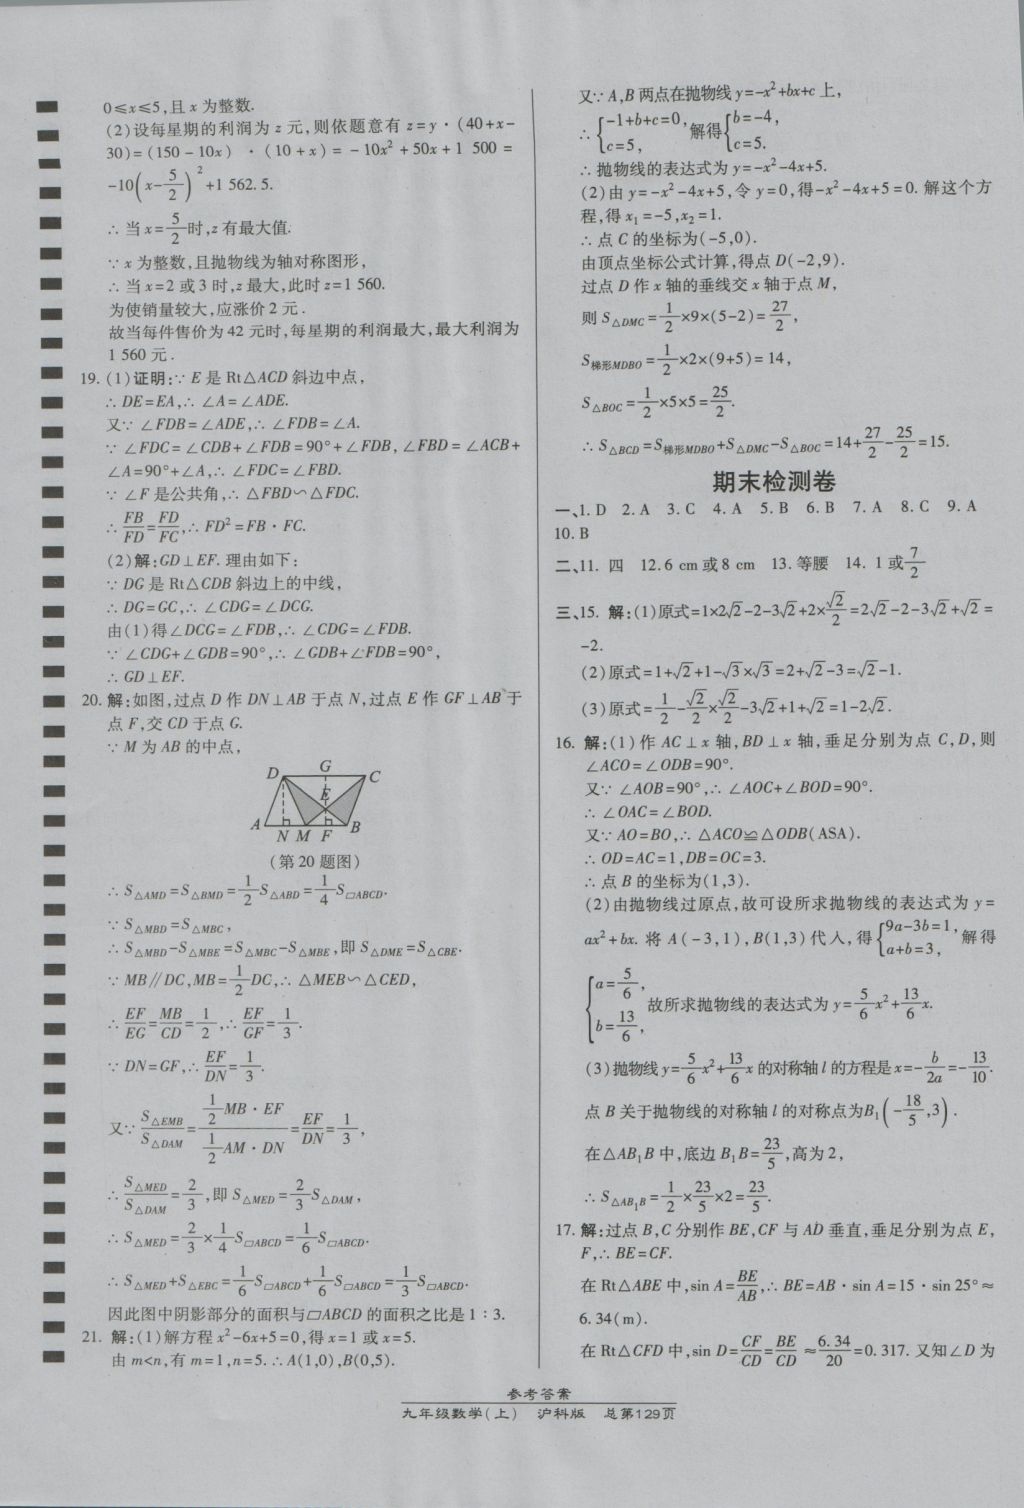 0≤x≤5,且 x 为整数.
(2)设每星期的利润为 z 元,则依题意有 z=y·(40+x-
30)=(150-10x)·(10+x)=-10x²+50x+1 500=
-10(x-5/2)²+1 562.5.
∴ 当 x=5/2时,z 有最大值.
∵ x 为整数,且抛物线为轴对称图形,
∴ 当 x=2 或 3 时,z 最大,此时 z=1 560.
为使销量较大,应涨价 2 元.
故当每件售价为 42 元时,每星期的利润最大,最大利润为
1 560 元.
19. (1)证明:∵ E 是 Rt△ACD 斜边中点,
∴ DE=EA,∴ ∠A=∠ADE.
又∵ ∠FDB=∠ADE,∴ ∠FDB=∠A.
∵ ∠FDC=∠CDB+∠FDB=90°+∠FDB,∠FBD=∠ACB+
∠A=90°+∠A,∴ ∠FDC=∠FBD.
∵ ∠F 是公共角,∴ △FBD∽△FDC.
∴ FB/FD=FD/FC,∴ FD²=FB·FC.
(2)解:GD⊥EF. 理由如下:
∵ DG 是 Rt△CDB 斜边上的中线,
∴ DG=GC,∴ ∠CDG=∠DCG.
由(1)得∠DCG=∠FDB,∴ ∠CDG=∠FDB.
∵ ∠CDG+∠GDB=90°,∴ ∠GDB+∠FDB=90°,
∴ GD⊥EF.
20. 解:如图,过点 D 作 DN⊥AB 于点 N,过点 E 作 GF⊥AB 于
点 F,交 CD 于点 G.
∵ M 为 AB 的中点,
D G C
E
A N M F B
(第 20 题图)
∴ S△AMD=S△BMD=1/2S△ABD=1/4S▱ABCD.
∵ S△MBD=S△MBC,
∴ S△MBD-S△MBE=S△MBC-S△MBE,即 S△DME=S△CBE.
∵ MB∥DC,MB=1/2DC,∴ △MEB∽△CED,
∴ EF/EG=MB/CD=1/2,∴ EF/GF=1/3.
∵ DN=GF,∴ EF/DN=1/3.
又∵ S△EMB/S△DAM=(1/2MB·EF)/(1/2AM·DN)=EF/DN=1/3,
∴ S△MED/S△DAM=2/3,即 S△MED=2/3S△DAM,
∴ S△MED=2/3×1/4S▱ABCD=1/6S▱ABCD.
∴ S△MED+S△EBC=1/6S▱ABCD+1/6S▱ABCD=1/3S▱ABCD.
因此图中阴影部分的面积与▱ABCD 的面积之比是 1∶3.
21. 解:(1)解方程 x²-6x+5=0,得 x=1 或 x=5.
由 m<n,有 m=1,n=5.∴ A(1,0),B(0,5).
又∵ A,B 两点在抛物线 y=-x²+bx+c 上,
∴ {-1+b+c=0, c=5, 解得{b=-4, c=5.
∴ 抛物线的表达式为 y=-x²-4x+5.
(2)由 y=-x²-4x+5,令 y=0,得-x²-4x+5=0. 解这个方
程,得 x₁=-5,x₂=1.
∴ 点 C 的坐标为(-5,0).
由顶点坐标公式计算,得点 D(-2,9).
过点 D 作 x 轴的垂线交 x 轴于点 M,
则 S△DMC=1/2×9×(5-2)=27/2,
S梯形MDBO=1/2×2×(9+5)=14,
S△BOC=1/2×5×5=25/2.
∴ S△BCD=S梯形MDBO+S△DMC-S△BOC=14+27/2-25/2=15.
期末检测卷
一、1. D 2. A 3. C 4. A 5. B 6. B 7. A 8. C 9. A
10. B
二、11. 四 12. 6 cm 或 8 cm 13. 等腰 14. 1 或7/2
三、15. 解:(1)原式=1×2√2-2-3√2+2×√2/2=2√2-2-3√2+√2=
-2.
(2)原式=1+√2+1-√3×√3=2+√2-3=√2-1.
(3)原式=1/2-√2/2×√2/2-3√2+1+√2=1-2√2.
16. 解:(1)作 AC⊥x 轴,BD⊥x 轴,垂足分别为点 C,D,则
∠ACO=∠ODB=90°.
又∵ ∠AOB=90°,∴ ∠AOC+∠BOD=90°.
∴ ∠OAC=∠BOD.
又∵ AO=BO,∴ △ACO≌△ODB(ASA).
∴ OD=AC=1,DB=OC=3.
∴ 点 B 的坐标为(1,3).
(2)由抛物线过原点,故可设所求抛物线的表达式为 y=
ax²+bx. 将 A(-3,1),B(1,3)代入,得{9a-3b=1, a+b=3, 解得
{a=5/6, b=13/6, 故所求抛物线的表达式为 y=5/6x²+13/6x.
(3)抛物线 y=5/6x²+13/6x 的对称轴 l 的方程是 x=-b/2a=-13/10.
点 B 关于抛物线的对称轴 l 的对称点为B₁(-18/5,3).
在△AB₁B 中,底边 B₁B=23/5,高为 2,
∴ S△AB₁B=1/2×23/5×2=23/5.
17. 解:过点 B,C 分别作 BE,CF 与 AD 垂直,垂足分别为点 E,
F,∴ BE=CF.
在 Rt△ABE 中,sin A=BE/AB,∴ BE=AB·sin A=15·sin 25°≈
6.34(m).
在 Rt△CFD 中,sin D=CF/CD=BE/CD≈6.34/20=0.317. 又知∠D 为
参考答案
九年级数学(上) 沪科版 总第129页